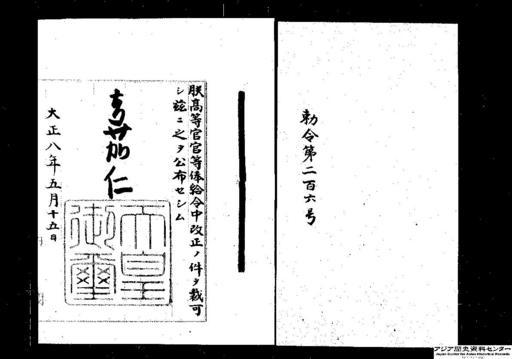 勅令第二百六号
朕高等官官等俸給令中改正ノ件ヲ裁可
シ茲ニ之ヲ公布セシム
嘉仁
天皇
御璽
大正八年五月十五日
アジア歴史資料センター
Japan Center for Asian Historical Records